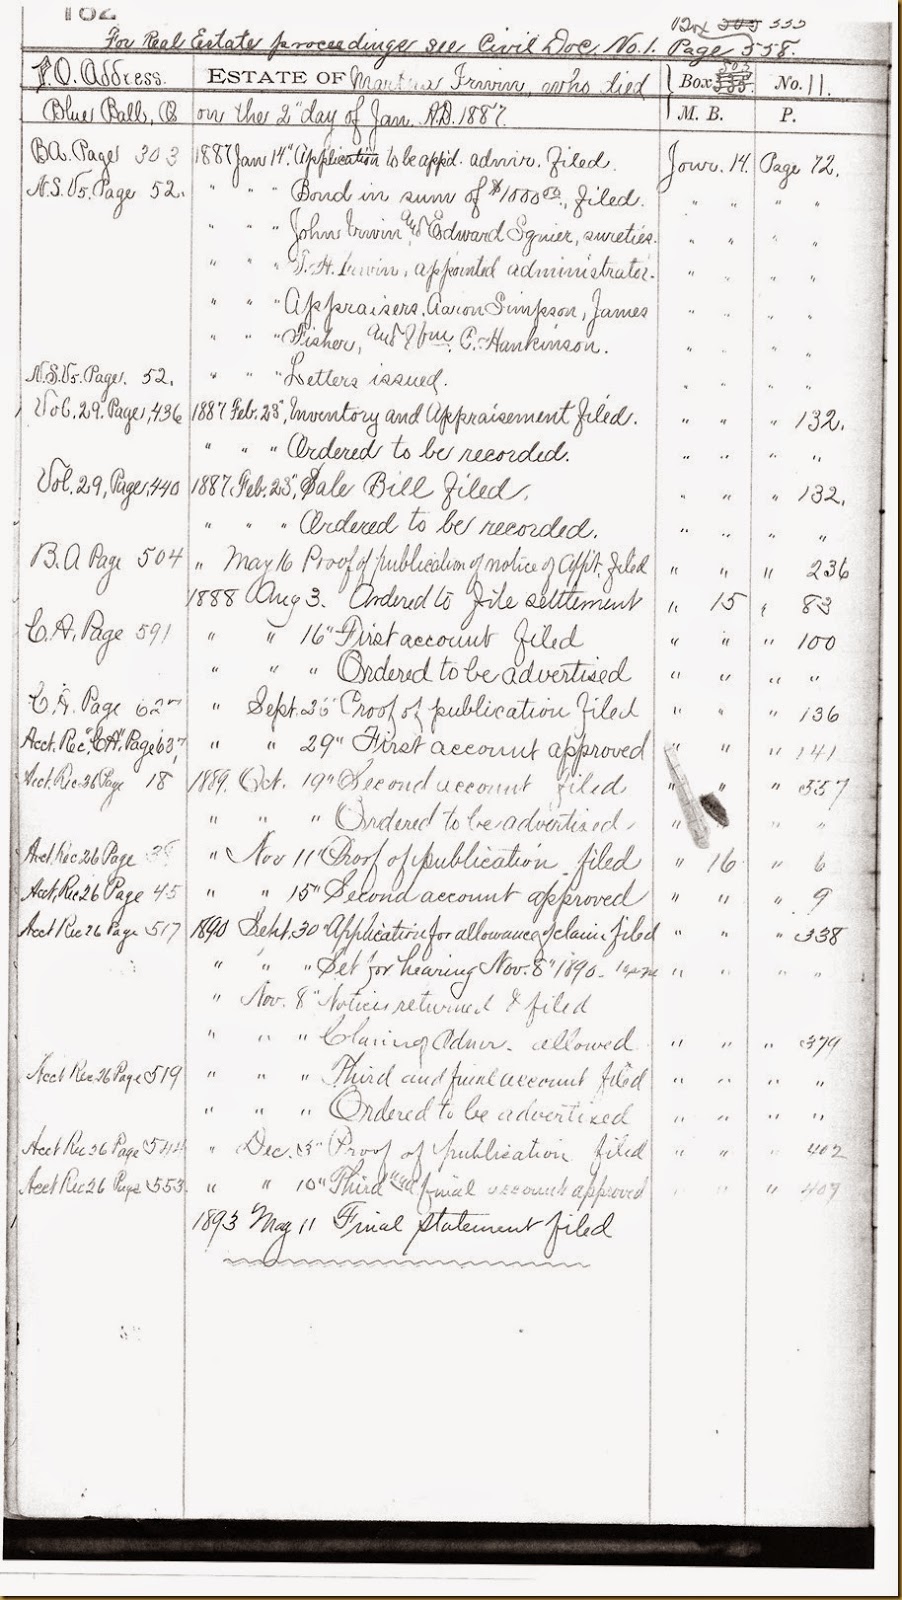 182
Box 305 333
For Real Estate proceedings see Civil Doc. No. 1. Page 558.
P.O. Address. ESTATE OF Martha Irwin, who died Box 335 503 No. 11.
Blue Ball, O on the 2" day of Jan. A.D. 1887. M. B. P.
B A. Page 303 1887 Jan 14" Application to be app'd. admr. filed. Jour. 14. Page 72.
N.S. V5. Page 52. " " " Bond in sum of $1000 00, filed. " " " "
" " " John Irwin and Edward Sgnier, sureties. " " " "
" " " T. H. Irwin, appointed administrator. " " " "
" " " Appraisers, Aaron Simpson, James " " " "
" " " Fisher, and Wm. C. Hankinson. " " " "
N.S. V5. Page. 52. " " " Letters issued. " " " "
Vol. 29. Page, 436 1887 Feb. 23", Inventory and Appraisement filed. " " " 132.
" " " Ordered to be recorded. " " " "
Vol. 29, Page, 440 1887 Feb. 23", Sale Bill filed. " " " 132.
" " " Ordered to be recorded. " " " "
B. A Page 504 " May 16 Proof of publication of notice of Appt. filed " " " 236
1888 Aug 3. Ordered to file settlement " 15 " 83
C. A. Page 591 " " 16" First account filed " " " 100
" " " Ordered to be advertised " " " "
C. A. Page 627 " Sept. 25" Proof of publication filed " " " 136
Acct. Rec. "C A" Page 637, " " 29" First account approved " " " 141
Acct. Rec 26 Page 18 1889. Oct. 19" Second account filed " " " 557
" " " Ordered to be advertised. " " " "
Acct Rec 26 Page 38 " Nov 11" Proof of publication filed " 16 " 6
Acct, Rec 26 Page 45 " " 15" Second account approved " " " 9
Acct Rec 26 Page 517 1890 Sept. 30 Application for allowance of claim filed " " " 338
" " " Set for hearing Nov. 8" 1890 - " " " "
" Nov. 8" Notices returned & filed
" " " Claim of Admr. allowed " " " 379
Acct Rec 26 Page 519 " " " Third and final account filed " " " "
" " " Ordered to be advertised " " " "
Acct Rec 26 Page 544 " Dec. 3" Proof of publication filed " " " 402
Acct Rec 26 Page 553 " " 10" Third and final account approved " " " 407
1893 May 11 Final statement filed